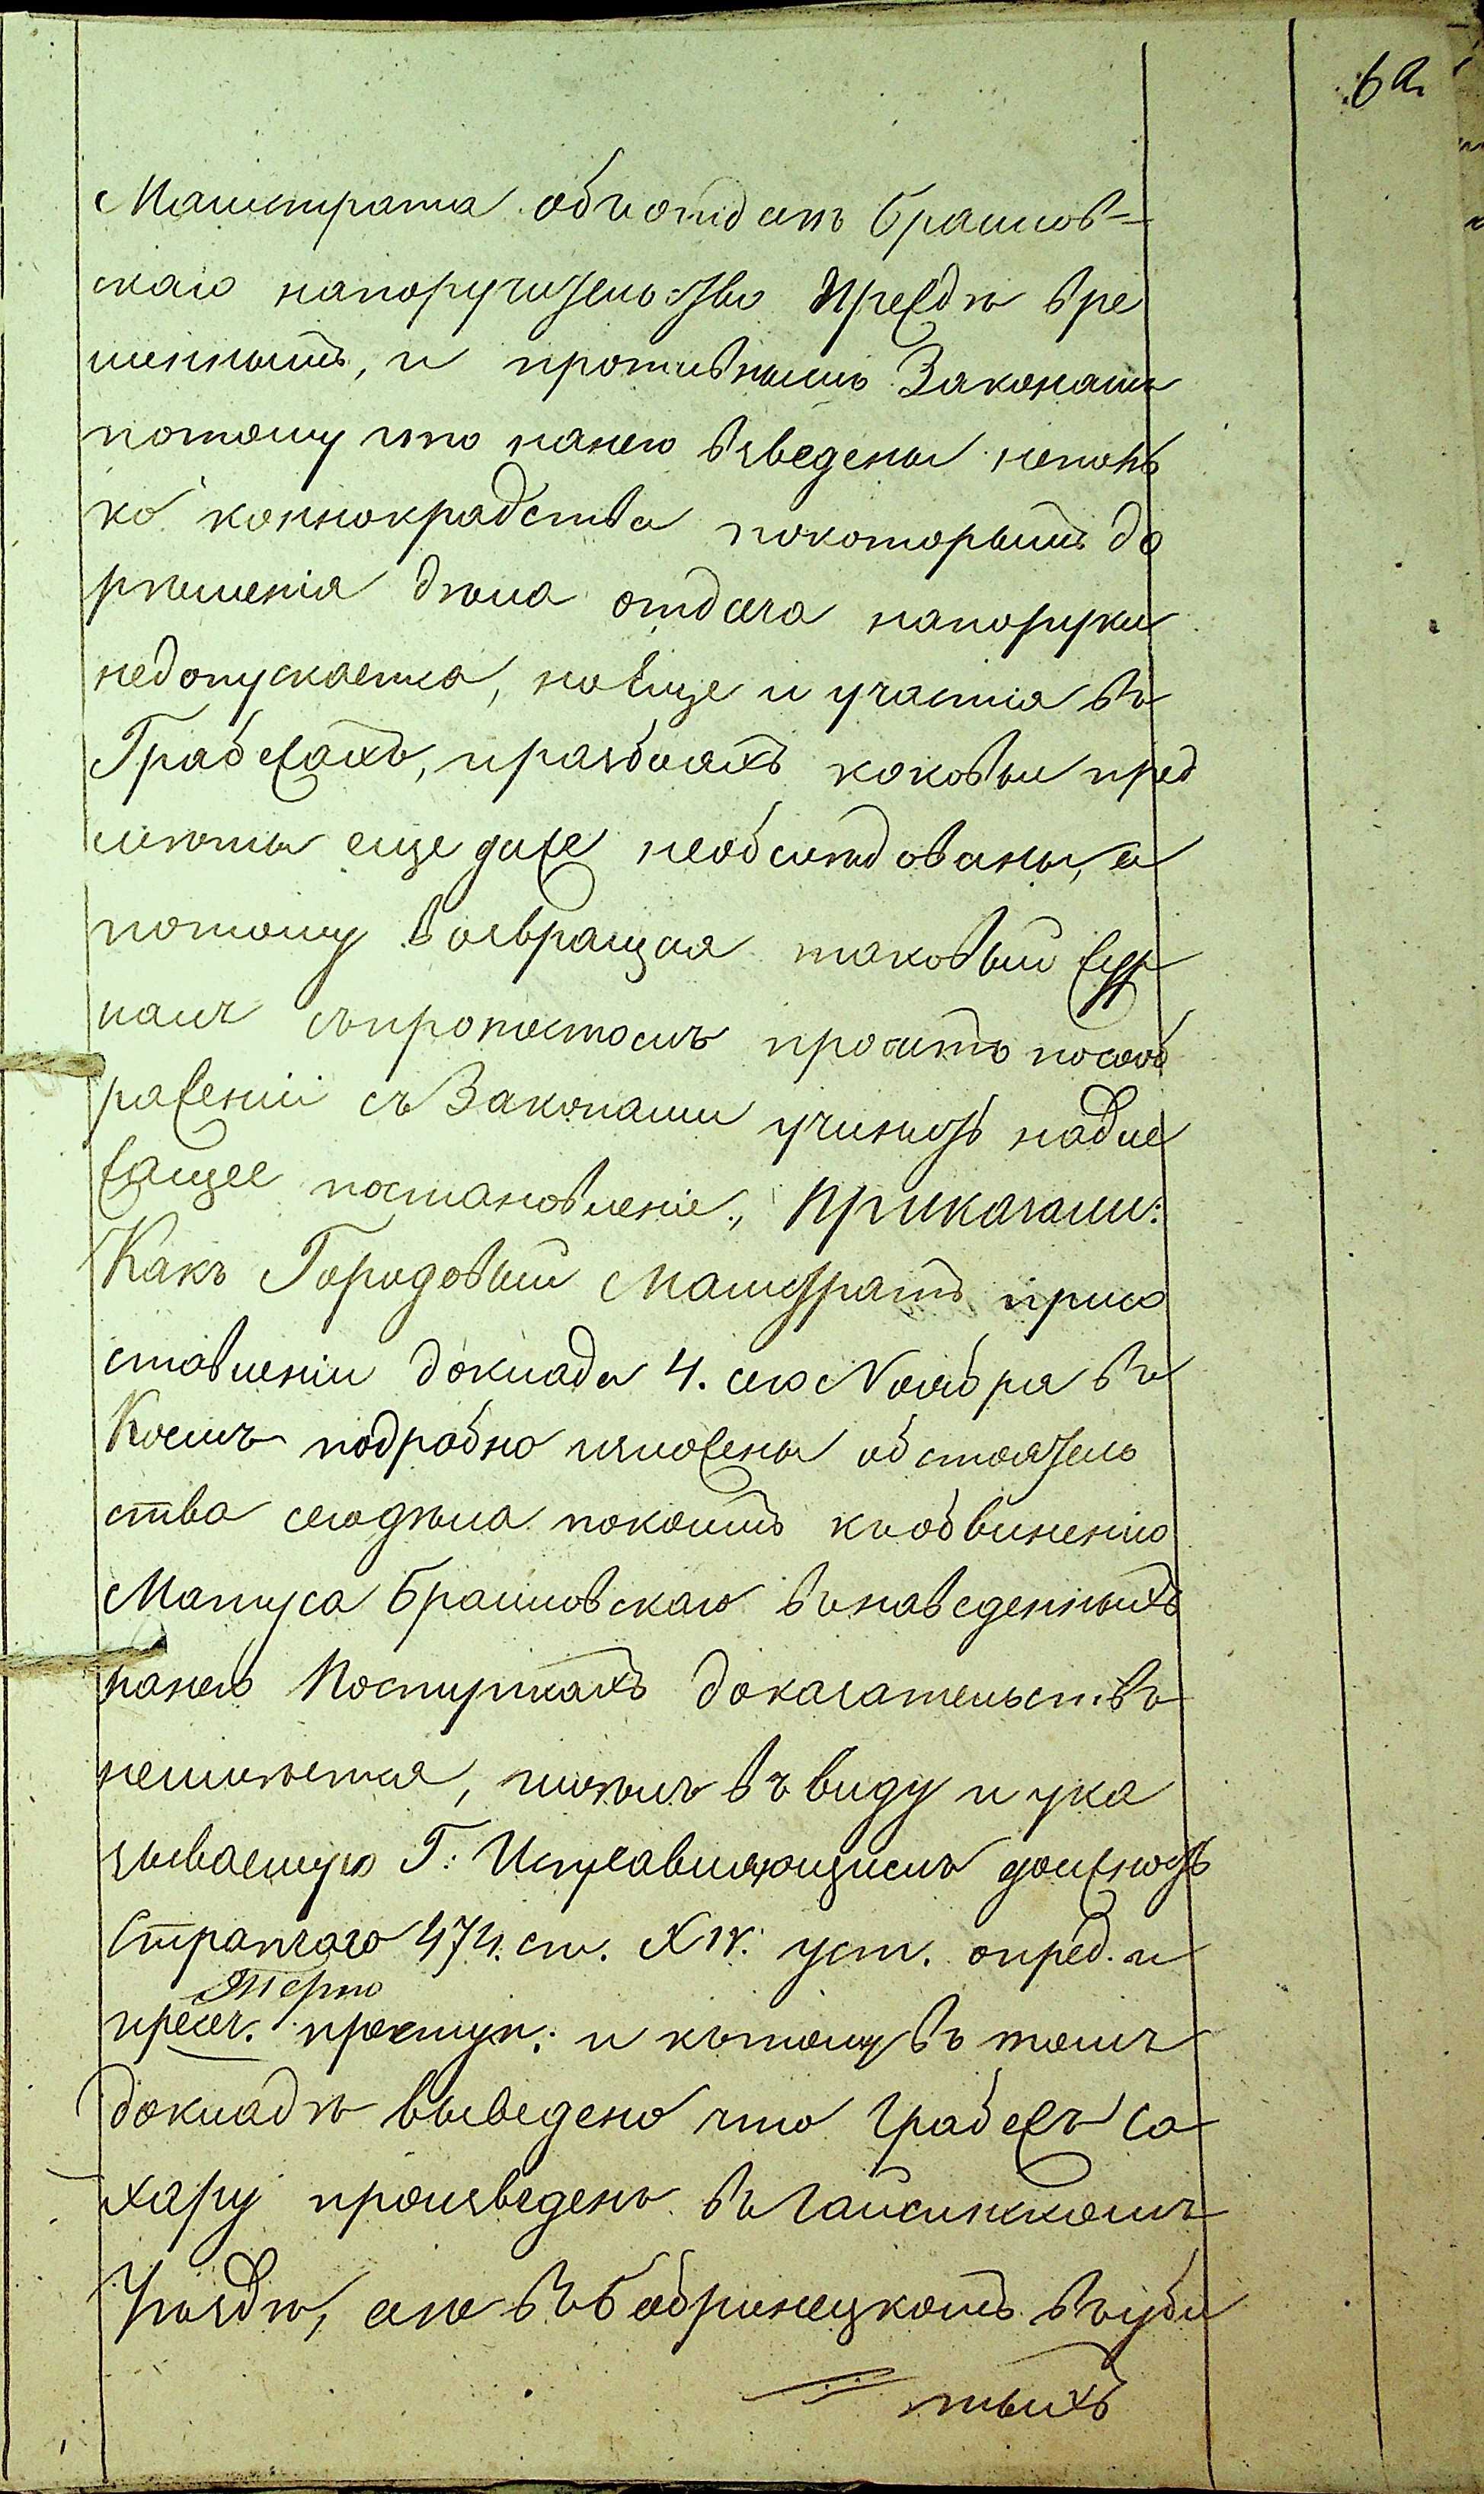 6а
Магистрата объ отдачѣ Браилов-
скаго напоручительство Преждевре
меннымъ, и противнымъ Законамъ
потому что нанего взведены нетоль
ко коннокрадства покоторымъ до
рѣшенія дѣла отдача напоруки
недопускается, ноеще и участія въ
Грабежахъ, иразбояхъ каковыи пред
меты еще даже необслѣдованы, а
потому возвращая таковый Жур
налъ съпротестомъ проситъ посооб
раженіи съ Законами учинить надле
жащее постановленіе., Приказали:
Какъ Городовый Магистратъ присо
ставленіи доклада 4. сего Ноября въ
Коемъ подробно изложены обстоятель
ства сегодѣла покоимъ къобвиненію
Матуса Браиловскаго вънаведенныхъ
нанего Поступкахъ доказательствъ
неимѣется, имѣлъ въ виду и ука
зываемую Г: Исправляющимъ должность
Стряпчаго 474. ст. XIV. уст. опред. и
пресеч. преступ: и къ тому въ томъ
докладѣ выведено что Грабежъ Са
хару произведенъ въ Гайсинскомъ
Уѣздѣ, а не въ Бобринецкомъ въ уби
тыхъ